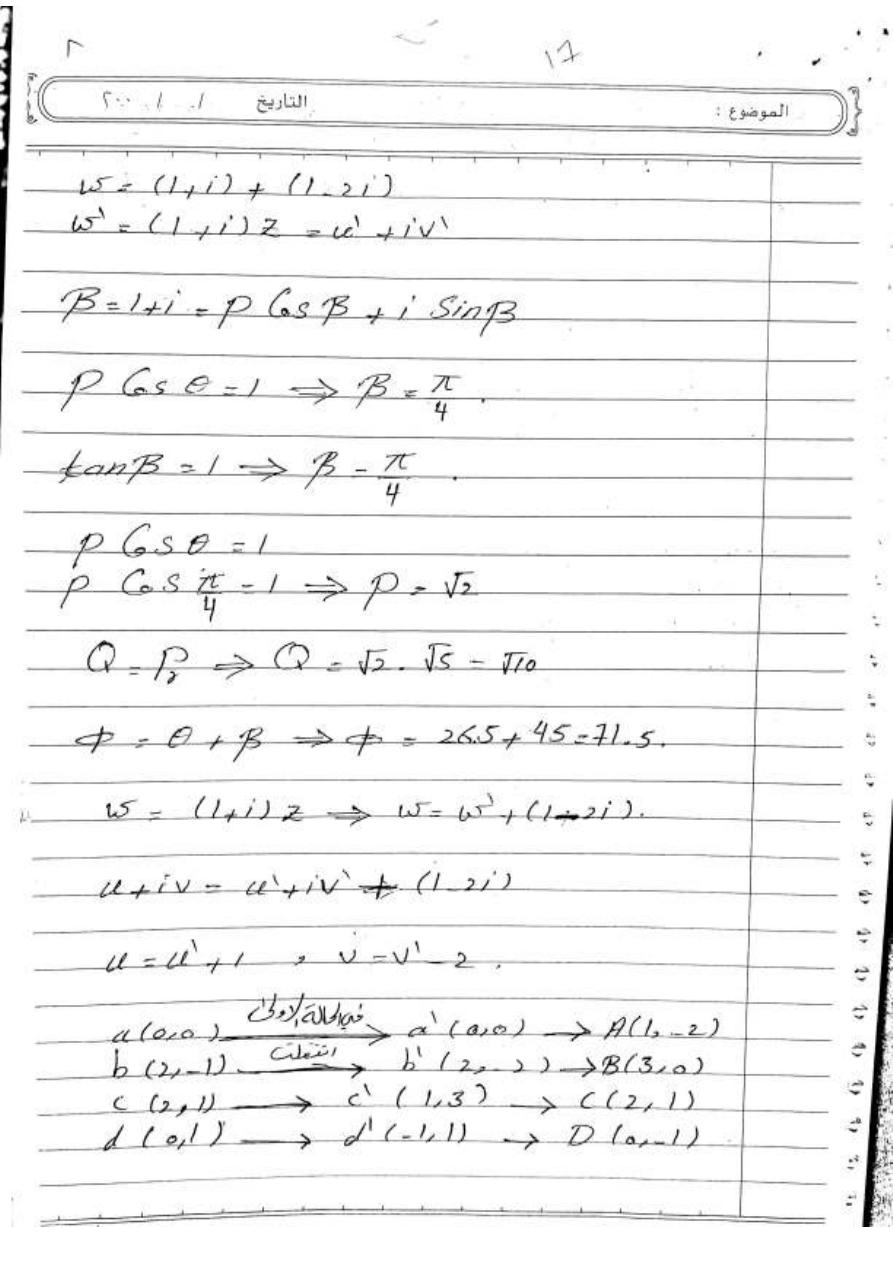 17
الموضوع : التاريخ / / ٢٠٠
w = (1+i) + (1-2i)
w' = (1+i) z = u' + iv'
β = 1+i = ρ Cos β + i Sin β
ρ Cos θ = 1 ⇒ β = π/4 .
tan β = 1 ⇒ β = π/4 .
ρ Cos θ = 1
ρ Cos π/4 = 1 ⇒ ρ = √2
Q = ρr ⇒ Q = √2 . √5 = √10
Φ = θ + β ⇒ Φ = 26.5 + 45 = 71.5 .
w = (1+i) z ⇒ w = w' + (1-2i) .
u + iv = u' + iv' + (1-2i)
u = u' + 1 , v = v' - 2 .
a (0,0) في الحالة الاولى → a' (0,0) → A (1,-2)
b (2,-1) انتقلت → b' (2,-2) → B (3,0)
c (2,1) → c' (1,3) → C (2,1)
d (0,1) → d' (-1,1) → D (0,-1)